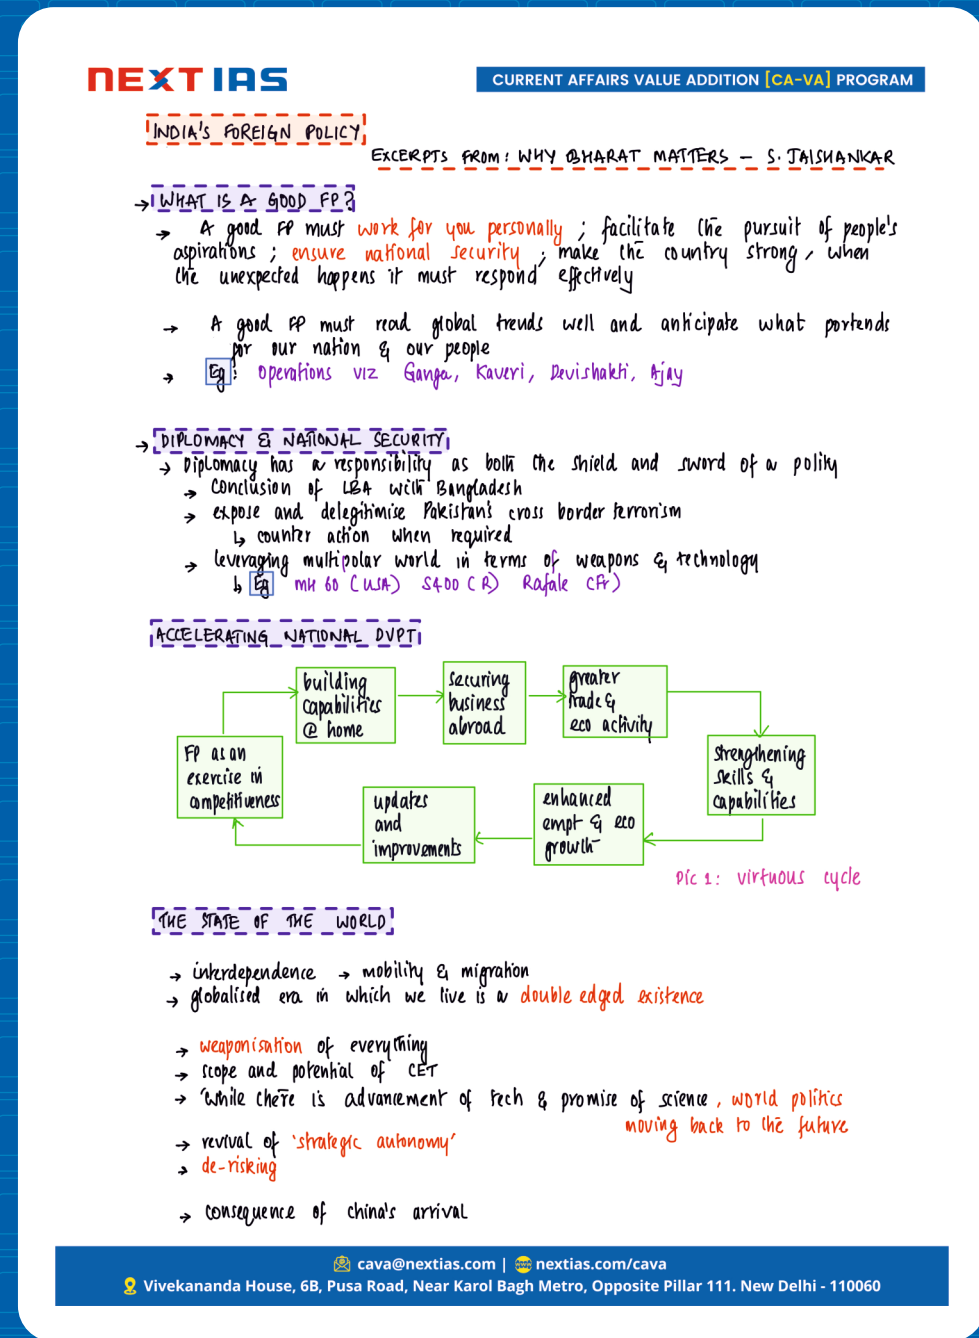 NEXT IAS
CURRENT AFFAIRS VALUE ADDITION [CA-VA] PROGRAM
INDIA'S FOREIGN POLICY
EXCERPTS FROM: WHY BHARAT MATTERS – S. JAISHANKAR
→ WHAT IS A GOOD FP?
→ A good FP must work for you personally ; facilitate the pursuit of people's
aspirations ; ensure national security ; make the country strong, when
the unexpected happens it must respond effectively
→ A good FP must read global trends well and anticipate what portends
for our nation & our people
→ Eg: Operations viz Ganga, Kaveri, Devishakti, Ajay
→ DIPLOMACY & NATIONAL SECURITY
→ Diplomacy has a responsibility as both the shield and sword of a polity
→ Conclusion of LBA with Bangladesh
→ expose and delegitimise Pakistan's cross border terrorism
↳ counter action when required
→ leveraging multipolar world in terms of weapons & technology
↳ Eg MH 60 (USA) S400 (R) Rafale (Fr)
ACCELERATING NATIONAL DVPT
building
capabilities
@ home
securing
business
abroad
greater
trade &
eco activity
strengthening
skills &
capabilities
enhanced
empt & eco
growth
updates
and
improvements
FP as an
exercise in
competitiveness
Pic 1: virtuous cycle
THE STATE OF THE WORLD
→ interdependence → mobility & migration
→ globalised era in which we live is a double edged existence
→ weaponisation of everything
→ scope and potential of CET
→ 'While there is advancement of tech & promise of science, world politics
moving back to the future
→ revival of 'strategic autonomy'
→ de-risking
→ consequence of china's arrival
cava@nextias.com | nextias.com/cava
Vivekananda House, 6B, Pusa Road, Near Karol Bagh Metro, Opposite Pillar 111. New Delhi - 110060